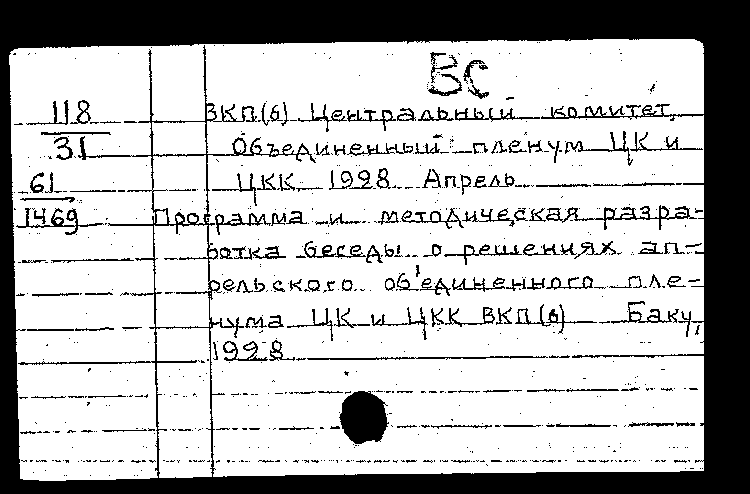 ВС
118
31
61
1469
ВКП(б) Центральный комитет.
Объединенный пленум ЦК и
ЦКК 1928 Апрель
Программа и методическая разра-
ботка беседы о решениях ап-
рельского об'единенного пле-
нума ЦК и ЦКК ВКП(б) Баку,
1928